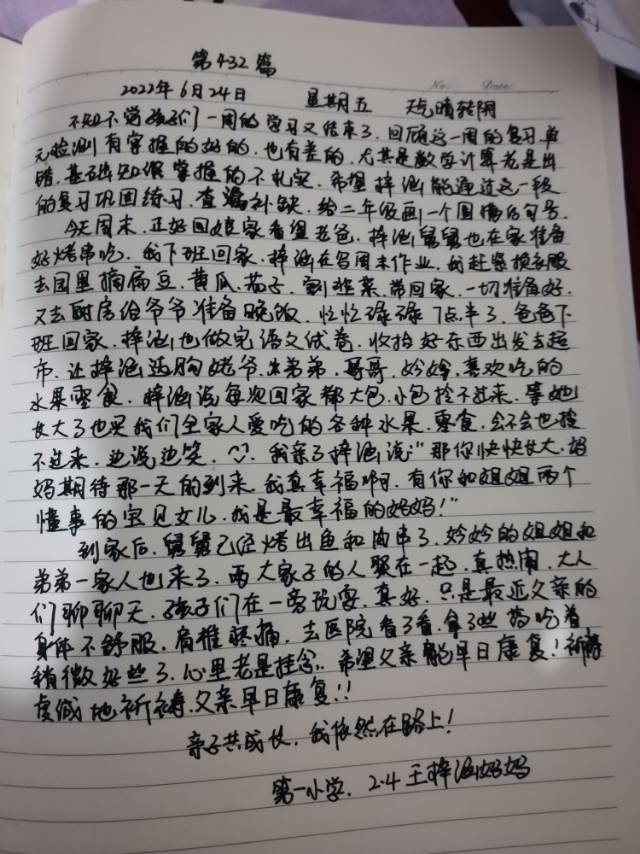 第432篇
No: Date:
2022年6月24日 星期五 天气晴转阴
不知不觉孩子们一周的学习又结束了.回顾这一周的复习.单
元检测有掌握的好的.也有差的.尤其是数学计算老是出
错.基础知识掌握的不扎实.希望梓涵能通过这一段
的复习巩固练习.查漏补缺.给二年级画一个圆满的句号.
今天周末.正好回娘家看望老爸.梓涵舅舅也在家准备
好烤串吃.我下班回家.梓涵在写周末作业.我赶紧换衣服
去园里摘扁豆.黄瓜.茄子.割韭菜.带回家.一切准备好.
又去厨房给爷爷准备晚饭.忙忙碌碌7点半了.爸爸下
班回家.梓涵也做完语文试卷.收拾好东西出发去超
市.让梓涵选购姥爷.弟弟.哥哥.妗妗.喜欢吃的
水果零食.梓涵说每次回家都大包小包拎不过来.等她
长大了也买我们全家人爱吃的各种水果.零食.会不会也拎
不过来.边说边笑.我亲了梓涵说:"那你快快长大.妈
妈期待那一天的到来.我真幸福啊.有你和姐姐两个
懂事的宝贝女儿.我是最幸福的妈妈!"
到家后.舅舅已经烤出鱼和肉串了.妗妗的姐姐和
弟弟一家人也来了.两大家子的人聚在一起.真热闹.大人
们聊聊天.孩子们在一旁玩耍.真好.只是最近父亲的
身体不舒服.肩椎疼痛.去医院看了看.拿了些药吃着
稍微好些了.心里老是挂念.希望父亲能早日康复!祈祷
虔诚地祈祷.父亲早日康复!!
亲子共成长.我依然在路上!
第一小学.2.4王梓涵妈妈